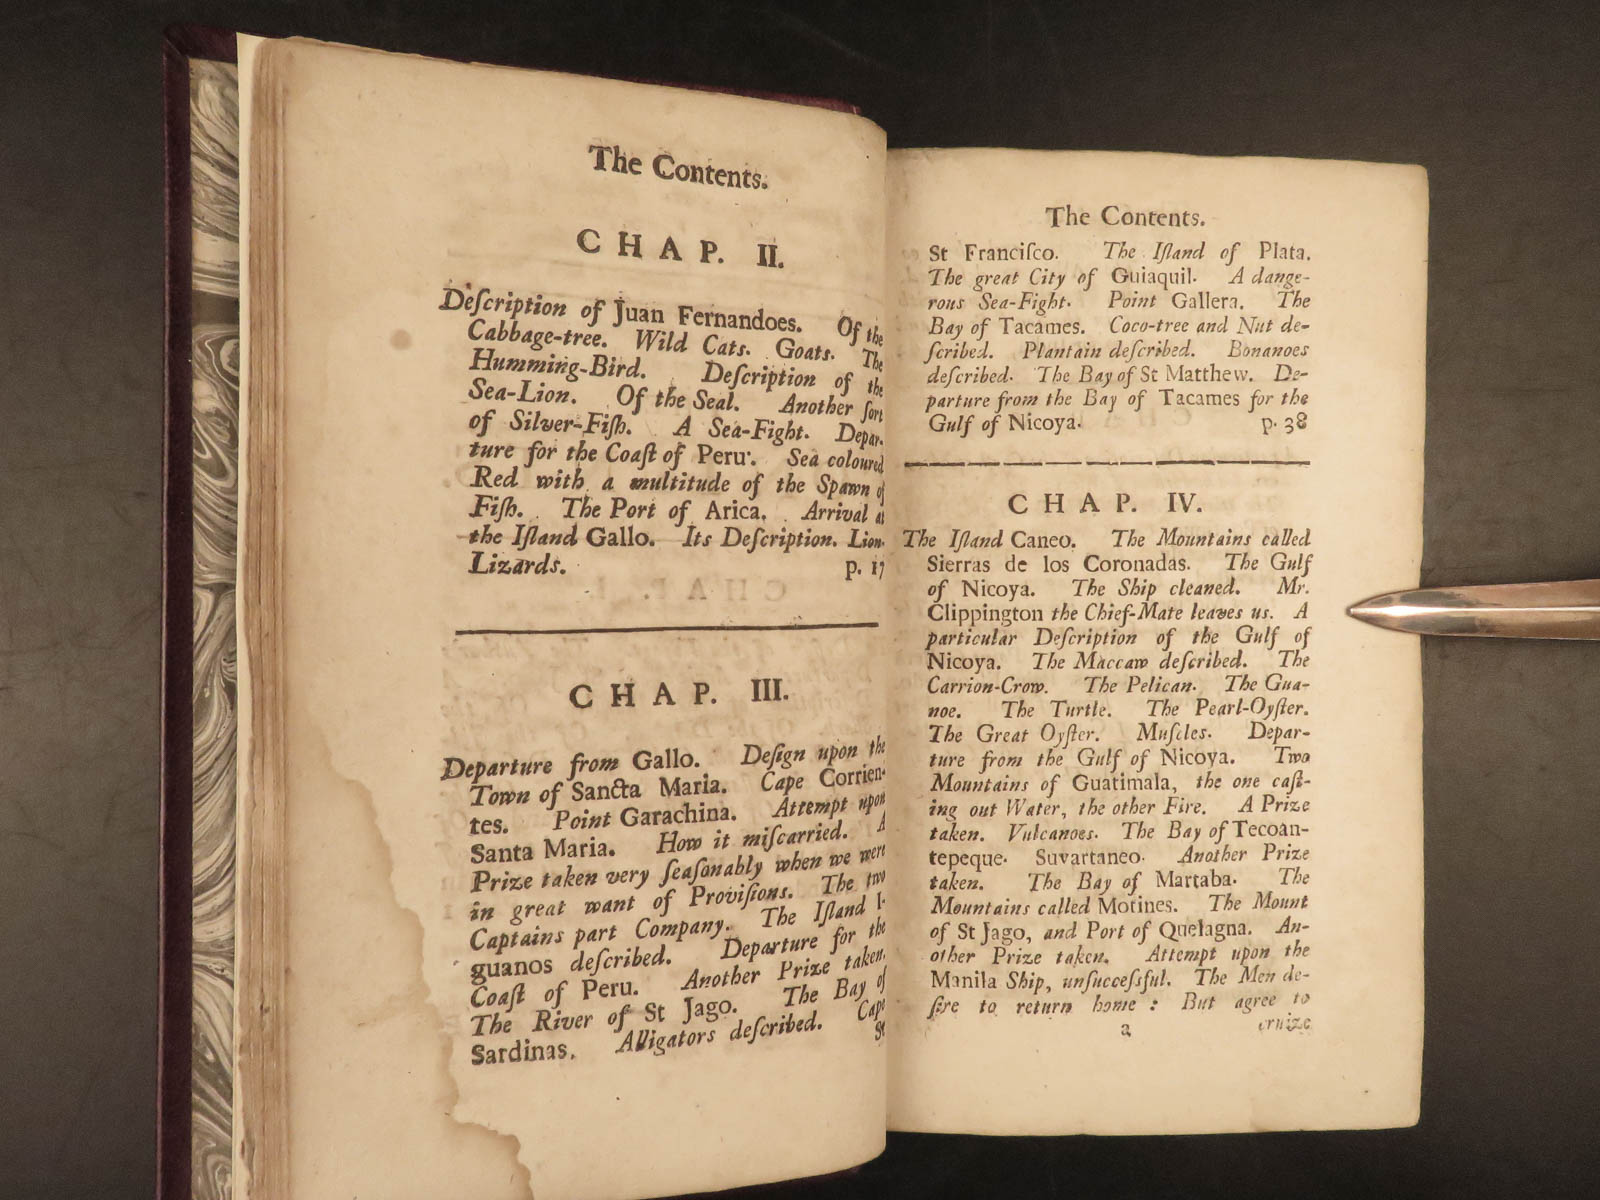 The Contents.
CHAP. II.
Deſcription of Juan Fernandoes. Of the
Cabbage-tree. Wild Cats. Goats. The
Humming-Bird. Deſcription of the
Sea-Lion. Of the Seal. Another ſort
of Silver-Fiſh. A Sea-Fight. Depar-
ture for the Coaſt of Peru. Sea coloured
Red with a multitude of the Spawn of
Fiſh. The Port of Arica. Arrival at
the Iſland Gallo. Its Deſcription. Lion-
Lizards. p. 17
CHAP. III.
Departure from Gallo. Deſign upon the
Town of Sancta Maria. Cape Corrien-
tes. Point Garachina. Attempt upon
Santa Maria. How it miſcarried. A
Prize taken very ſeaſonably when we were
in great want of Proviſions. The two
Captains part Company. The Iſland I-
guanos deſcribed. Departure for the
Coaſt of Peru. Another Prize taken.
The River of St Jago. The Bay of
Sardinas. Alligators deſcribed. Cape
St
The Contents.
St Franciſco. The Iſland of Plata.
The great City of Guiaquil. A dange-
rous Sea-Fight. Point Gallera. The
Bay of Tacames. Coco-tree and Nut de-
ſcribed. Plantain deſcribed. Bonanoes
deſcribed. The Bay of St Matthew. De-
parture from the Bay of Tacames for the
Gulf of Nicoya. p. 38
CHAP. IV.
The Iſland Caneo. The Mountains called
Sierras de los Coronadas. The Gulf
of Nicoya. The Ship cleaned. Mr.
Clippington the Chief-Mate leaves us. A
particular Deſcription of the Gulf of
Nicoya. The Maccaw deſcribed. The
Carrion-Crow. The Pelican. The Gua-
noe. The Turtle. The Pearl-Oyſter.
The Great Oyſter. Muſcles. Depar-
ture from the Gulf of Nicoya. Two
Mountains of Guatimala, the one caſt-
ing out Water, the other Fire. A Prize
taken. Vulcanoes. The Bay of Tecoan-
tepeque. Suvartaneo. Another Prize
taken. The Bay of Martaba. The
Mountains called Motines. The Mount
of St Jago, and Port of Quelagna. An-
other Prize taken. Attempt upon the
Manila Ship, unſucceſsful. The Men de-
ſire to return home : But agree to
a cruize